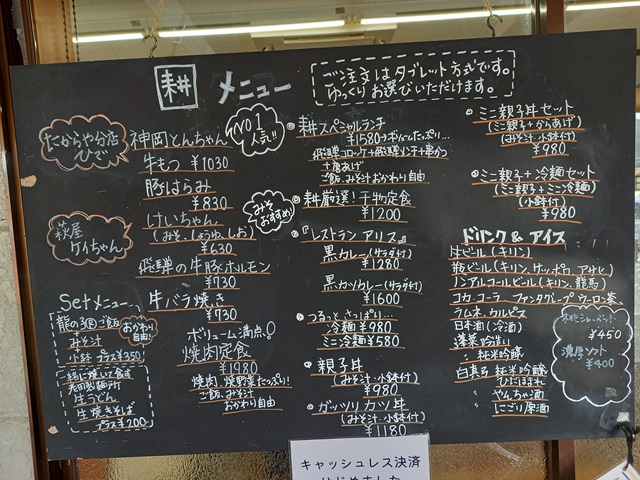 耕 メニュー
ご注文はタブレット方式です。
ゆっくりお選びいただけます。
たからや分店
ひだ
神岡とんちゃん
牛もつ ¥1030
豚はらみ
¥830
NO1
人気!!
萩屋
ケイちゃん
けいちゃん
(みそ・しょうゆ・しお)
¥630
みそ
おすすめ!
飛騨の牛豚ホルモン
¥730
牛バラ焼き
¥730
Setメニュー
龍の瞳ご飯
みそ汁
小鉢 プラス¥350
おかわり
自由!
一緒に焼いて食す
老田製麺所
生うどん
生焼きそば
プラス¥200
ボリューム満点!
焼肉定食
¥1980
焼肉 焼野菜たっぷり!
ご飯、みそ汁
おかわり自由
耕スペシャルランチ
¥1580 ボリュームたっぷり…
飛騨コロッケ+飛騨メンチ+串かつ
+唐あげ
ご飯、みそ汁おかわり自由
耕厳選!干物定食
¥1200
『レストラン アリス』
黒カレー(サラダ付)
¥1280
黒カツカレー(サラダ付)
¥1600
つるっとさっぱり…
冷麺 ¥980
ミニ冷麺 ¥580
親子丼
(みそ汁・小鉢付)
¥980
ガッツリカツ丼
(みそ汁・小鉢付)
¥1180
ミニ親子丼セット
(ミニ親子+からあげ)
(みそ汁・小鉢付)
¥980
ミニ親子+冷麺セット
(ミニ親子+ミニ冷麺)
(小鉢付)
¥980
ドリンク & アイス
生ビール(キリン)
瓶ビール(キリン、サッポロ、アサヒ)
ノンアルコールビール(キリン、龍馬)
コカ・コーラ ファンタグレープ ウーロン茶
ラムネ、カルピス
日本酒(冷酒)
蓬莱 吟醸
純米吟醸
白真弓 純米吟醸
ひだほまれ
やんちゃ酒
にごり原酒
シャーベット
¥450
濃厚ソフト
¥400
キャッシュレス決済
はじめました